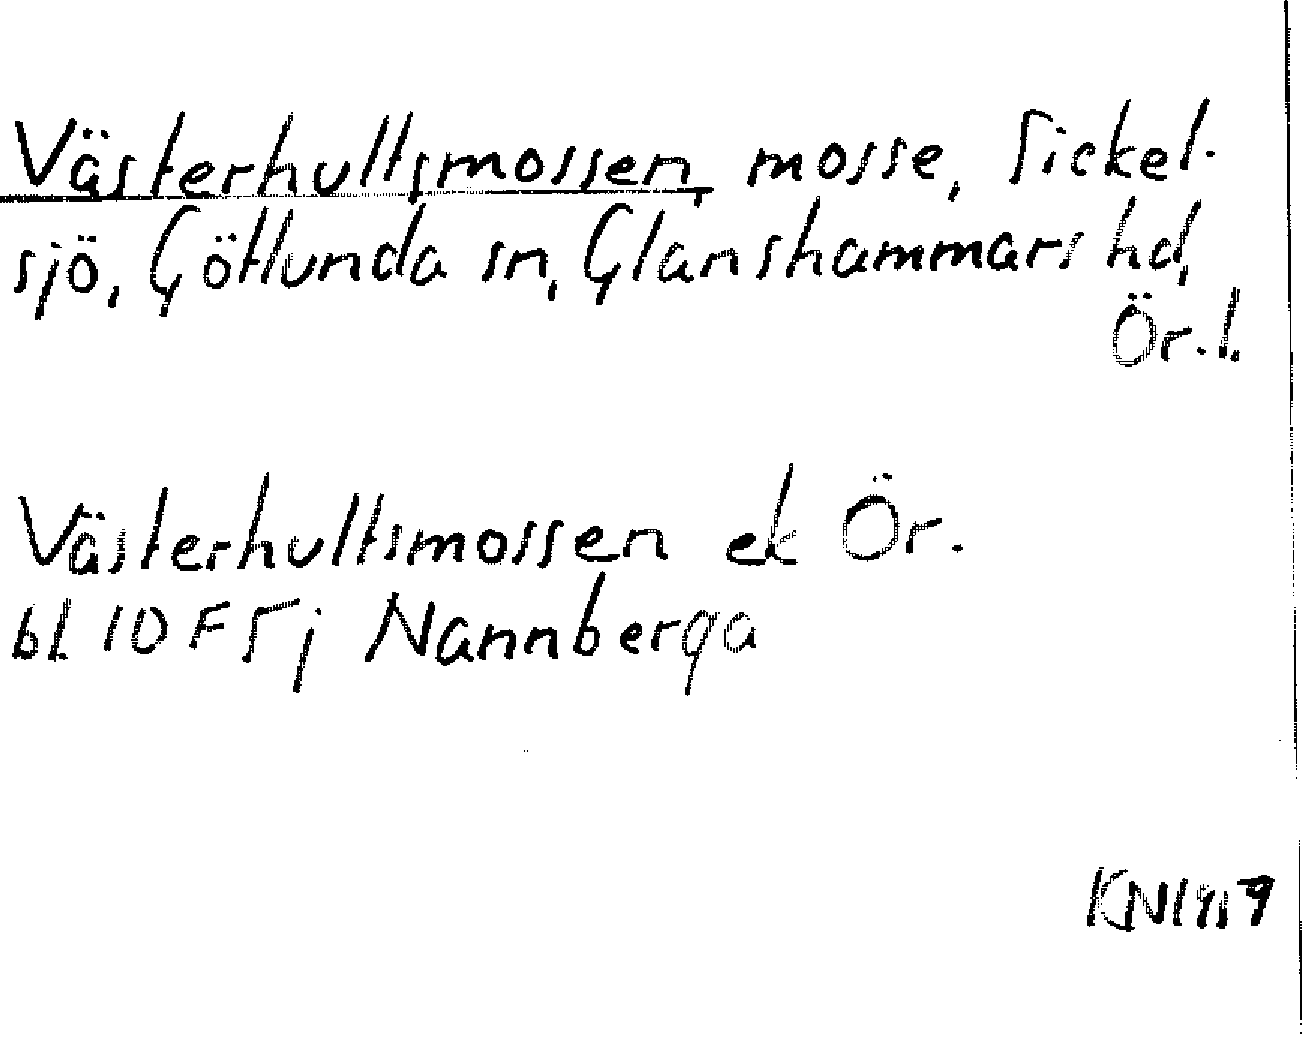 Västerhultsmossen, mosse, Sickel-
sjö, Götlunda sn, Glanshammars hd,
Ör.l.
Västerhultsmossen ek Ör.
bl. 10 F 5 j Nannberga